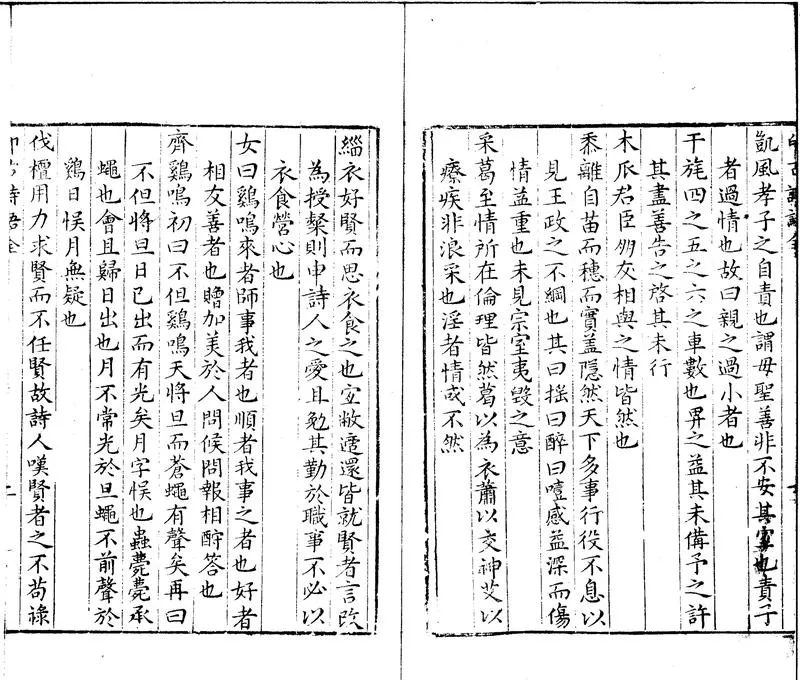 凱風孝子之自責也謂母聖善非不安其室也責子
者過情也故曰親之過小者也
干旄四之五之六之車數也畀之益其未備予之許
其盡善告之啓其未行
木瓜君臣朋友相與之情皆然也
黍離自苗而穗而實蓋隱然天下多事行役不息以
見王政之不綱也其曰搖曰醉曰噎感益深而傷
情益重也未見宗室夷毀之意
采葛至情所在倫理皆然葛以為衣蕭以交神艾以
療疾非浪采也淫者情或不然
緇衣好賢而思衣食之也宜敝適還皆就賢者言改
為授粲則申詩人之愛且勉其勤於職事不必以
衣食營心也
女曰鷄鳴來者師事我者也順者我事之者也好者
相友善者也贈加美於人問候問報相酧答也
齊鷄鳴初曰不但鷄鳴天將旦而蒼蠅有聲矣再曰
不但將旦日已出而有光矣月字悞也蟲薨薨承
蠅也會且歸日出也月不常光於旦蠅不前聲於
鷄日悞月無疑也
伐檀用力求賢而不任賢故詩人嘆賢者之不苟祿